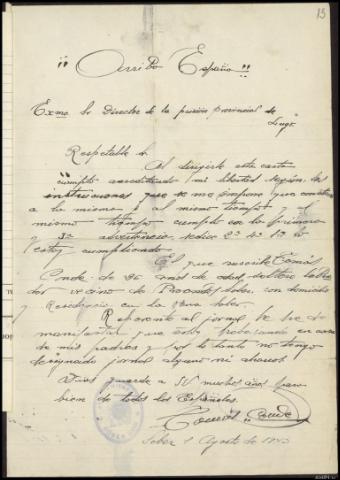 15
"Arriba España"
Exmo Sr Director de la prisión provincial de
Lugo
Respetable Sr.
Al dirigirle esta carta
cumplo acreditando mi libertad según las
instrucciones que se me impone que
a la misma i al mismo tiempo y al
mismo tiempo cumplo con la primera
y 3ª advertencia,
estoy cumpliendo
El que suscribe Tomás
Conde de años de edad, soltero labra
dor vecino de con domicilio
y Residencia en la Sober.
Referente al jornal le he de
manifestar que estoy trabajando en casa
de mis padres y por lo tanto no tengo
designado jornal alguno ni ahorros.
Dios guarde a SV muchos años para
bien de todos los Españoles.
Tomás Conde
Sober 1 Agosto de